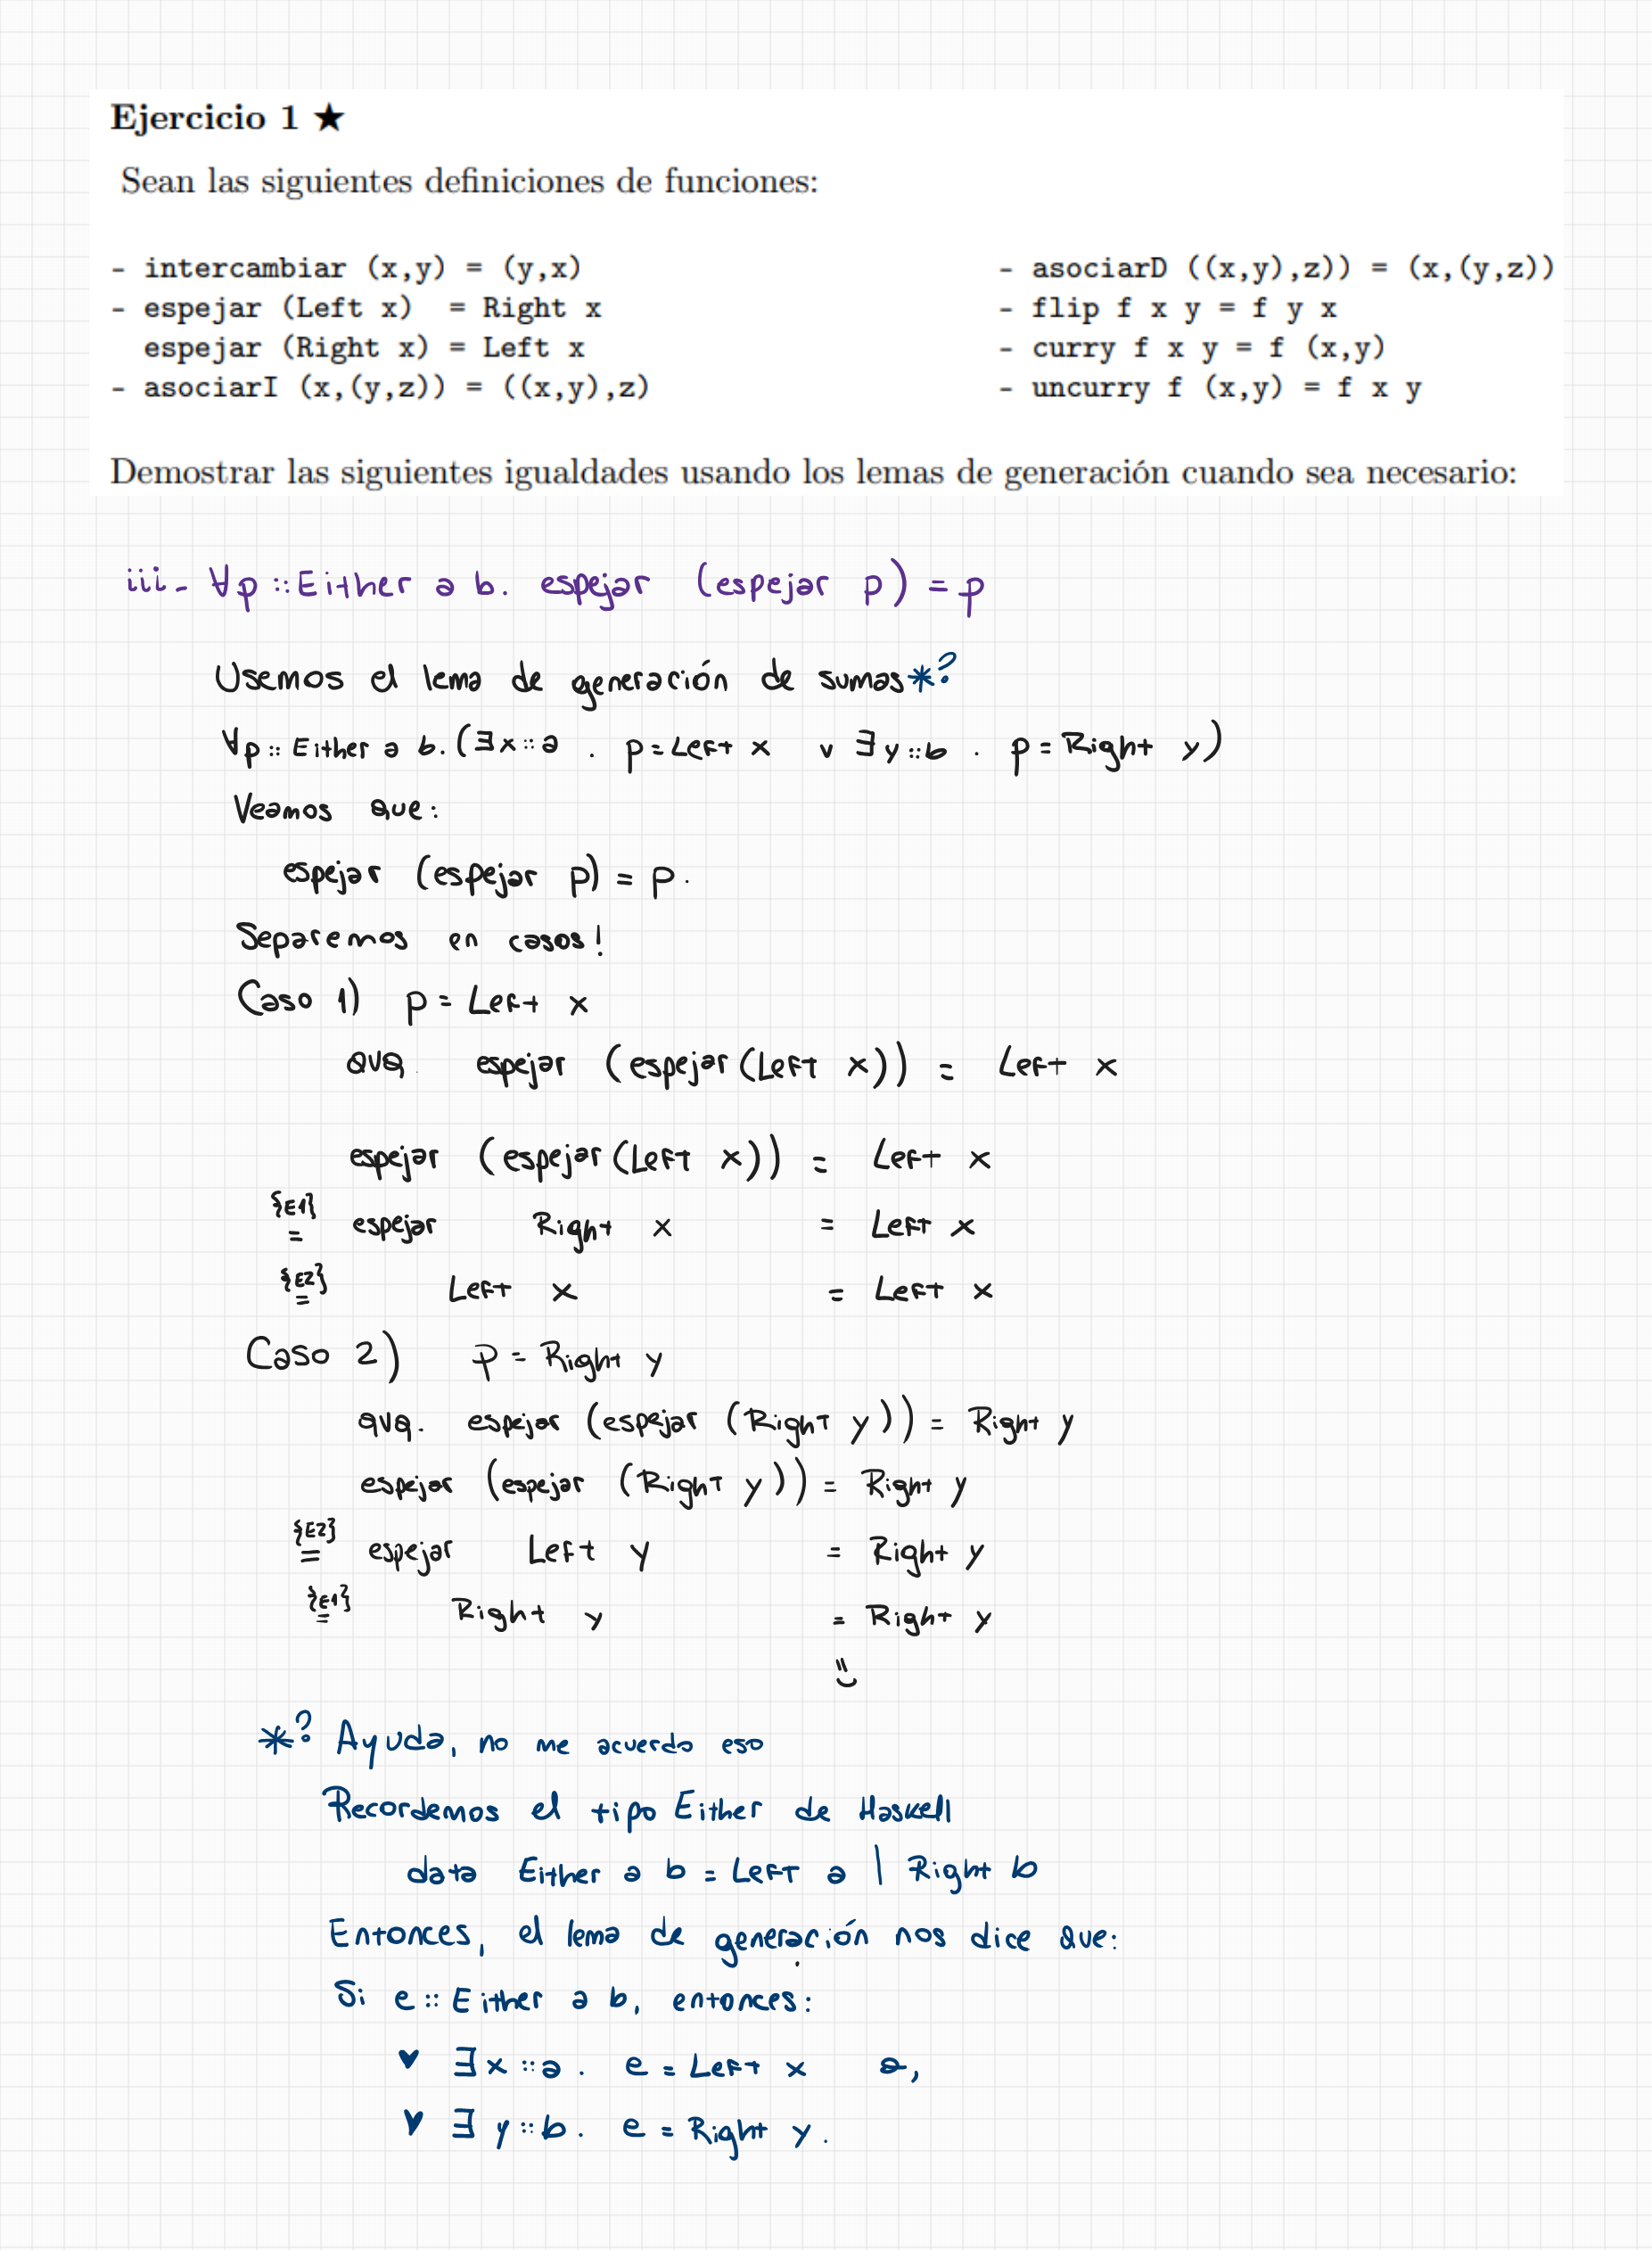 Ejercicio 1 ★
Sean las siguientes definiciones de funciones:
- intercambiar (x,y) = (y,x)
- espejar (Left x)  = Right x
espejar (Right x) = Left x
- asociarI (x,(y,z)) = ((x,y),z)
- asociarD ((x,y),z)) = (x,(y,z))
- flip f x y = f y x
- curry f x y = f (x,y)
- uncurry f (x,y) = f x y
Demostrar las siguientes igualdades usando los lemas de generación cuando sea necesario:
iii- ∀p::Either a b. espejar (espejar p) = p
Usemos el lema de generación de sumas *?
∀p::Either a b. (∃x::a . p = Left x ∨ ∃y::b . p = Right y)
Veamos que:
espejar (espejar p) = p.
Separemos en casos!
Caso 1) p = Left x
qvq. espejar (espejar (Left x)) = Left x
espejar (espejar (Left x)) = Left x
{E1} = espejar Right x = Left x
{E2} = Left x = Left x
Caso 2) p = Right y
qvq. espejar (espejar (Right y)) = Right y
espejar (espejar (Right y)) = Right y
{E2} = espejar Left y = Right y
{E1} = Right y = Right y
*? Ayuda, no me acuerdo eso
Recordemos el tipo Either de Haskell
data Either a b = Left a | Right b
Entonces, el lema de generación nos dice que:
Si e::Either a b, entonces:
♥ ∃x::a. e = Left x o,
♥ ∃y::b. e = Right y.